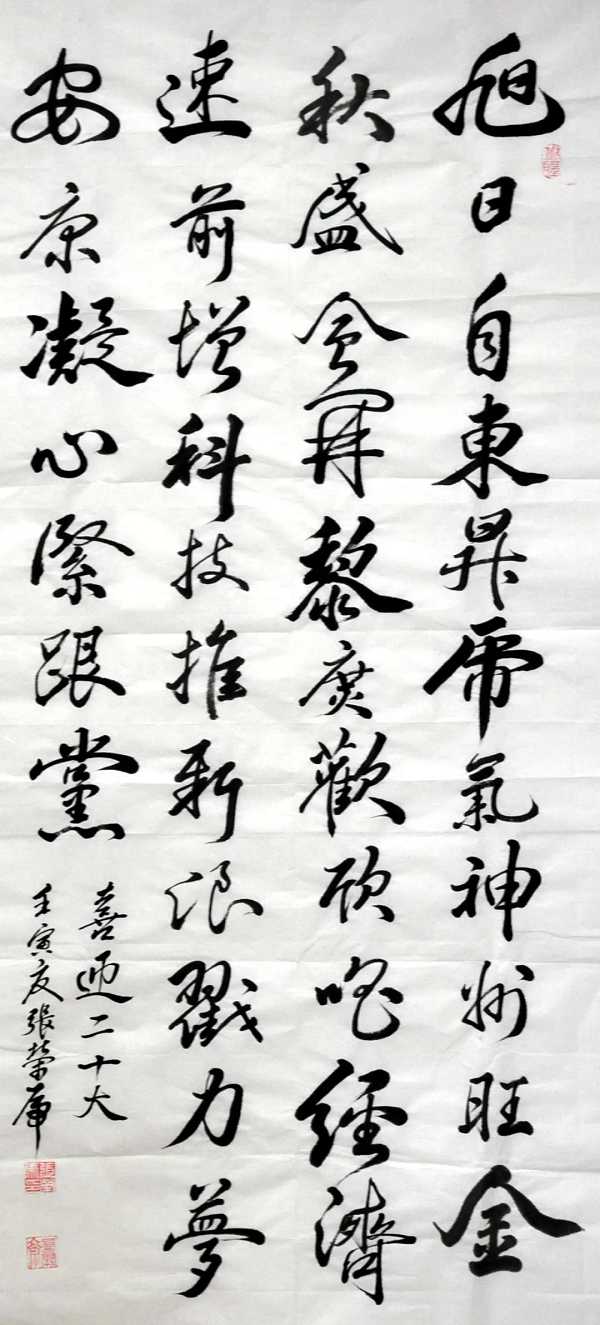 旭日自東昇虎氣神州旺金
秋盛會開黎庶歡欣唱經濟
速前增科技推新浪戮力夢
安康凝心緊跟黨
喜迎二十大
壬寅夏張榮虎